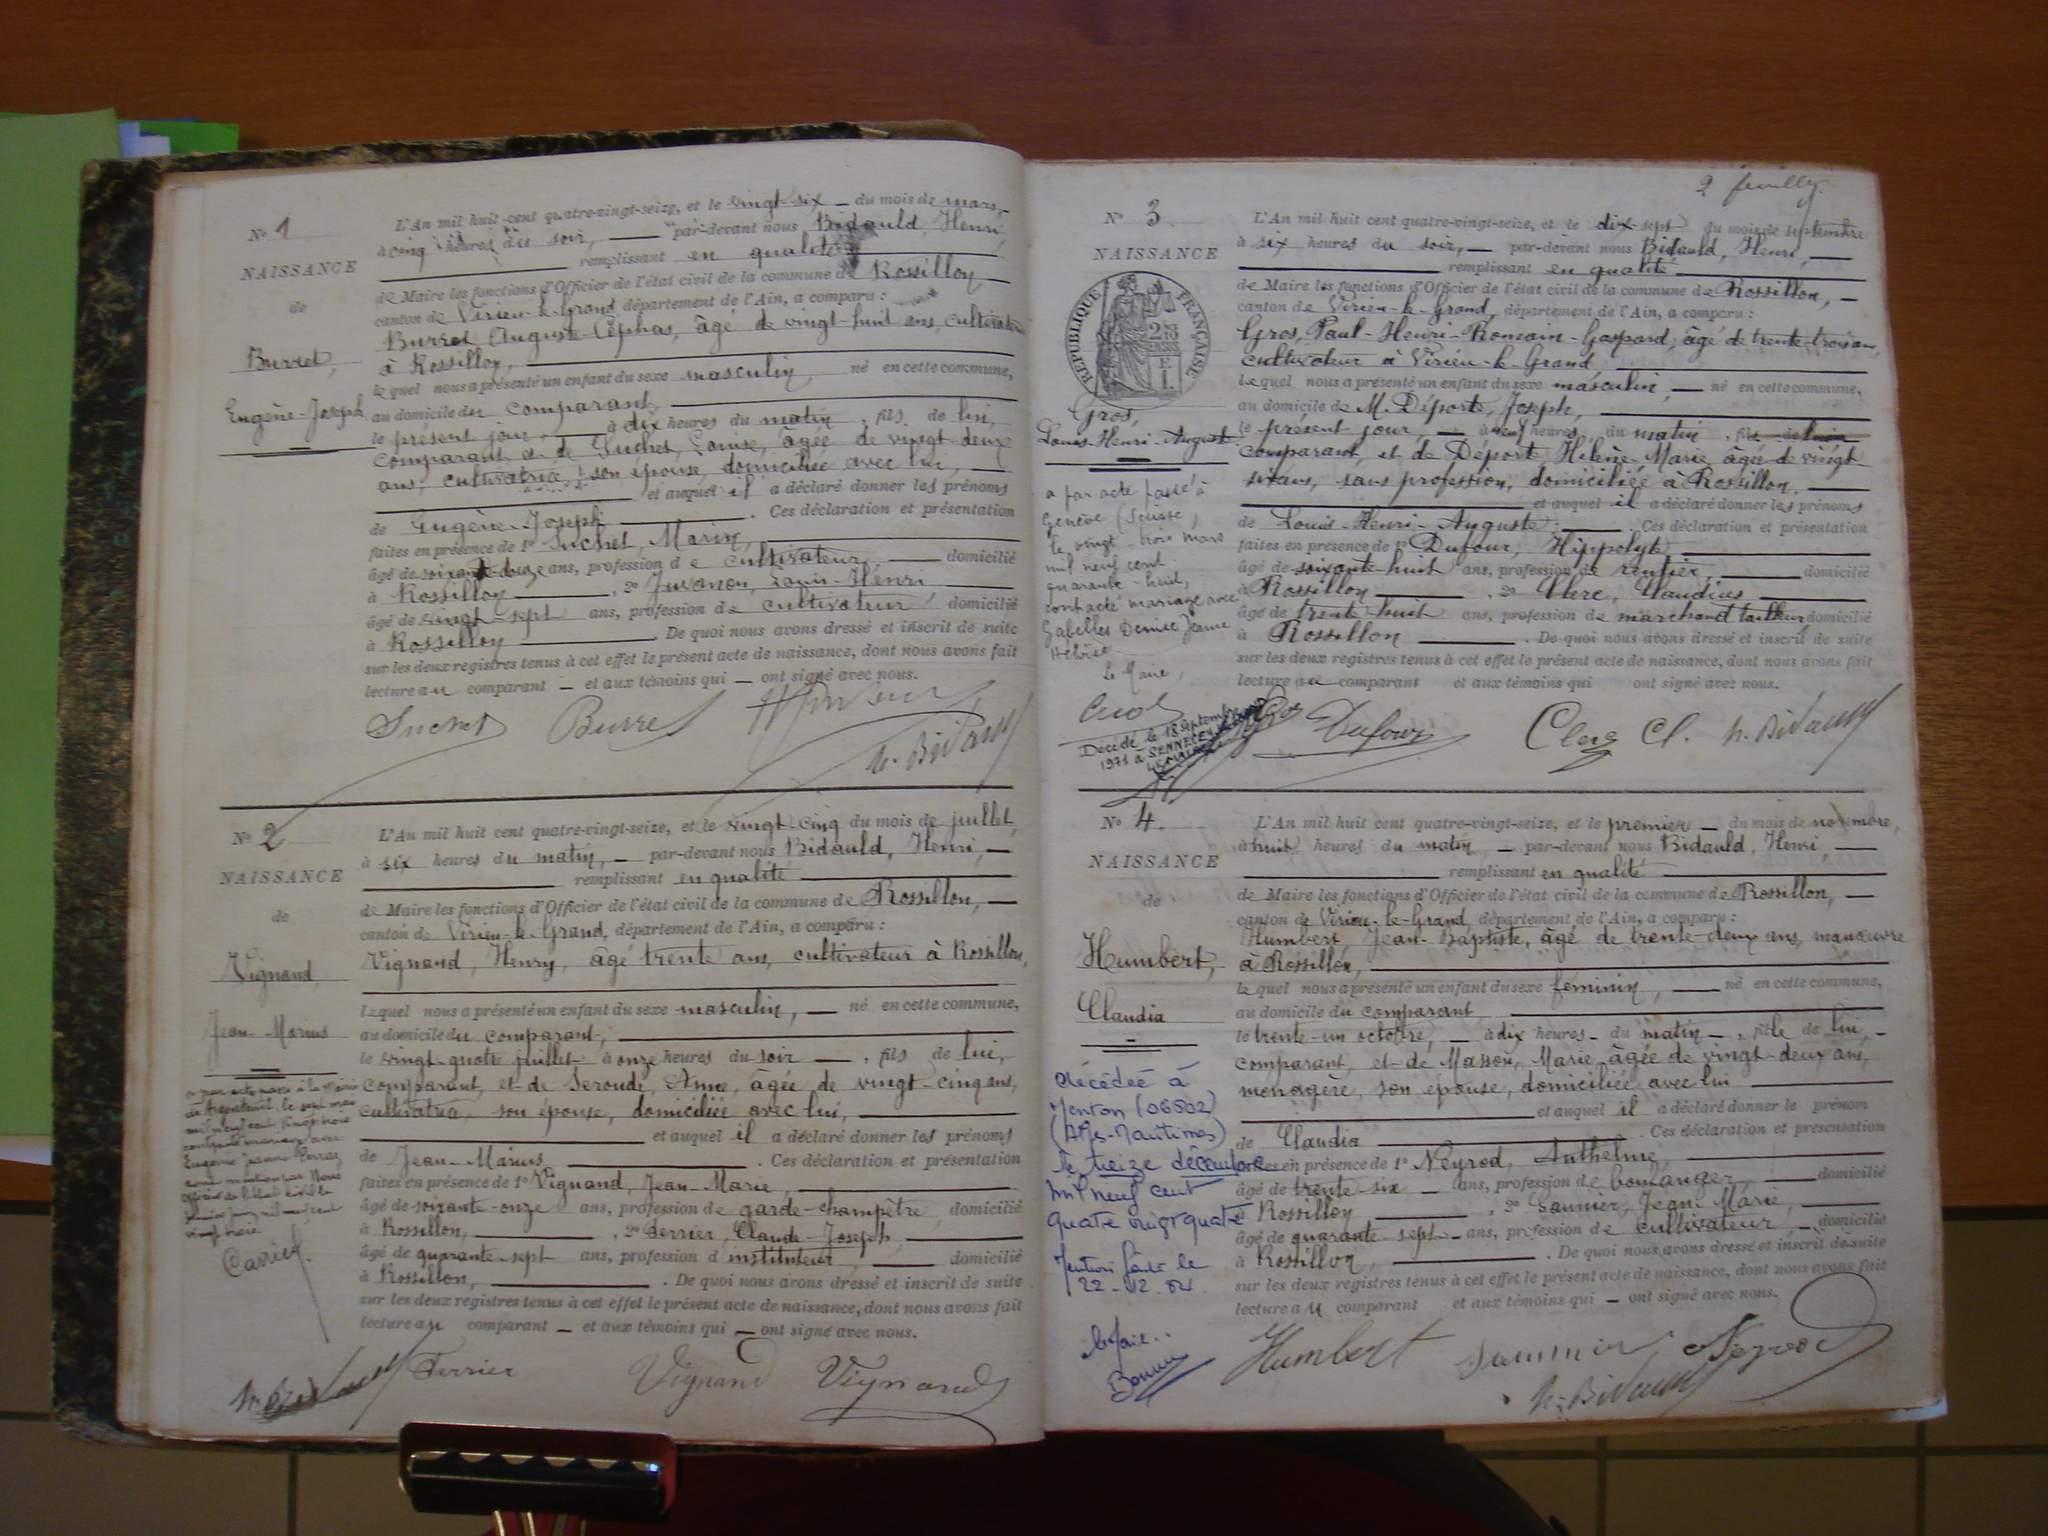 No 1
NAISSANCE
de
Burret,
Eugène-Joseph
L'An mil huit cent quatre-vingt-seize, et le vingt-six du mois de mars,
à cinq heures du soir, par-devant nous Bidauld, Henri,
remplissant en qualité
de Maire les fonctions d'Officier de l'état civil de la commune de Rossillon
canton de Virieu-le-Grand département de l'Ain, a comparu :
Burret Auguste Céphas, âgé de vingt-huit ans, cultivateur
à Rossillon,
lequel nous a présenté un enfant du sexe masculin né en cette commune,
au domicile du comparant,
le présent jour, à dix heures du matin, fils de lui,
comparant, et de Suchet, Louise, âgée de vingt-deux
ans, cultivatrice, son épouse, domiciliée avec lui,
et auquel il a déclaré donner les prénoms
de Eugène-Joseph. Ces déclaration et présentation
faites en présence de 1° Suchet, Marin,
âgé de soixante-douze ans, profession de cultivateur, domicilié
à Rossillon, 2° Juvanon, Louis-Henri
âgé de vingt-sept ans, profession de cultivateur, domicilié
à Rossillon. De quoi nous avons dressé et inscrit de suite
sur les deux registres tenus à cet effet le présent acte de naissance, dont nous avons fait
lecture au comparant et aux témoins qui ont signé avec nous.
Suchet Burret
h. Bidauld
No 2
NAISSANCE
de
Vignand,
Jean-Marius
L'An mil huit cent quatre-vingt-seize, et le vingt-cinq du mois de juillet,
à six heures du matin, par-devant nous Bidauld, Henri,
remplissant en qualité
de Maire les fonctions d'Officier de l'état civil de la commune de Rossillon,
canton de Virieu-le-Grand, département de l'Ain, a comparu :
Vignand, Henry, âgé trente ans, cultivateur à Rossillon,
lequel nous a présenté un enfant du sexe masculin, né en cette commune,
au domicile du comparant,
le vingt-quatre juillet à onze heures du soir, fils de lui,
comparant, et de Seroude, Anne, âgée de vingt-cinq ans,
cultivatrice, son épouse, domiciliée avec lui,
et auquel il a déclaré donner les prénoms
de Jean-Marius. Ces déclaration et présentation
faites en présence de 1° Vignand, Jean-Marie,
âgé de soixante-onze ans, profession de garde-champêtre, domicilié
à Rossillon, 2° Ferrier, Claude-Joseph,
âgé de quarante-sept ans, profession d instituteur, domicilié
à Rossillon,. De quoi nous avons dressé et inscrit de suite
sur les deux registres tenus à cet effet le présent acte de naissance, dont nous avons fait
lecture au comparant et aux témoins qui ont signé avec nous.
a par acte passé à la Mairie
le sept mai
mil neuf cent vingt trois
contracté mariage avec
Eugénie Jeanne
mil neuf cent
vingt trois.
Ferrier Vignand Vignand
2 feuillet
No 3
NAISSANCE
RÉPUBLIQUE FRANÇAISE
Gros,
Louis-Henri-Auguste
L'An mil huit cent quatre-vingt-seize, et le dix-sept du mois de septembre
à six heures du soir, par-devant nous Bidauld, Henri,
remplissant en qualité
de Maire les fonctions d'Officier de l'état civil de la commune de Rossillon,
canton de Virieu-le-Grand, département de l'Ain, a comparu :
Gros, Paul-Henri-Romain-Gaspard, âgé de trente-trois ans,
cultivateur à Virieu-le-Grand
lequel nous a présenté un enfant du sexe masculin, né en cette commune,
au domicile de M. Déporte, Joseph,
le présent jour, à neuf heures du matin, fils de lui
comparant, et de Déport Helène-Marie, âgée de vingt-
six ans, sans profession, domiciliée à Rossillon.
et auquel il a déclaré donner les prénoms
de Louis-Henri-Auguste. Ces déclaration et présentation
faites en présence de 1° Dufour, Hippolyte
âgé de soixante-huit ans, profession de rentier, domicilié
à Rossillon, 2° Clerc, Claudius
âgé de trente-huit ans, profession de marchand tailleur domicilié
à Rossillon. De quoi nous avons dressé et inscrit de suite
sur les deux registres tenus à cet effet le présent acte de naissance, dont nous avons fait
lecture au comparant et aux témoins qui ont signé avec nous.
a par acte passé à
Genève (Suisse)
le vingt-trois mars
mil neuf cent
quarante-huit,
contracté mariage avec
Gabelles Denise Jeanne
Héloïse
Le Maire,
Décédé le 18 septembre
1971 à SENNECEY
Gros Dufour Clerc Cl. h. Bidauld
No 4.
NAISSANCE
de
Humbert,
Claudia
L'An mil huit cent quatre-vingt-seize, et le premier du mois de novembre,
à huit heures du matin, par-devant nous Bidauld, Henri,
remplissant en qualité
de Maire les fonctions d'Officier de l'état civil de la commune de Rossillon,
canton de Virieu-le-Grand, département de l'Ain, a comparu :
Humbert, Jean-Baptiste, âgé de trente-deux ans, manœuvre
à Rossillon,
lequel nous a présenté un enfant du sexe féminin, né en cette commune,
au domicile du comparant
le trente-un octobre, à dix heures du matin, fille de lui,
comparant, et de Masson, Marie, âgée de vingt-deux ans,
menagère, son épouse, domiciliée avec lui
et auquel il a déclaré donner le prénom
de Claudia. Ces déclaration et présentation
faites en présence de 1° Neyrod, Anthelme,
âgé de trente-six ans, profession de boulanger, domicilié
à Rossillon, 2° Saunier, Jean-Marie,
âgé de quarante-sept ans, profession de cultivateur, domicilié
à Rossillon,. De quoi nous avons dressé et inscrit de suite
sur les deux registres tenus à cet effet le présent acte de naissance, dont nous avons fait
lecture au comparant et aux témoins qui ont signé avec nous.
décédée à
Menton (06502)
(Alpes-Maritimes)
le treize décembre
mil neuf cent
quatre vingt quatre
Mention faite le
22-12.84.
le Maire
Humbert Saunier Neyrod
h. Bidauld